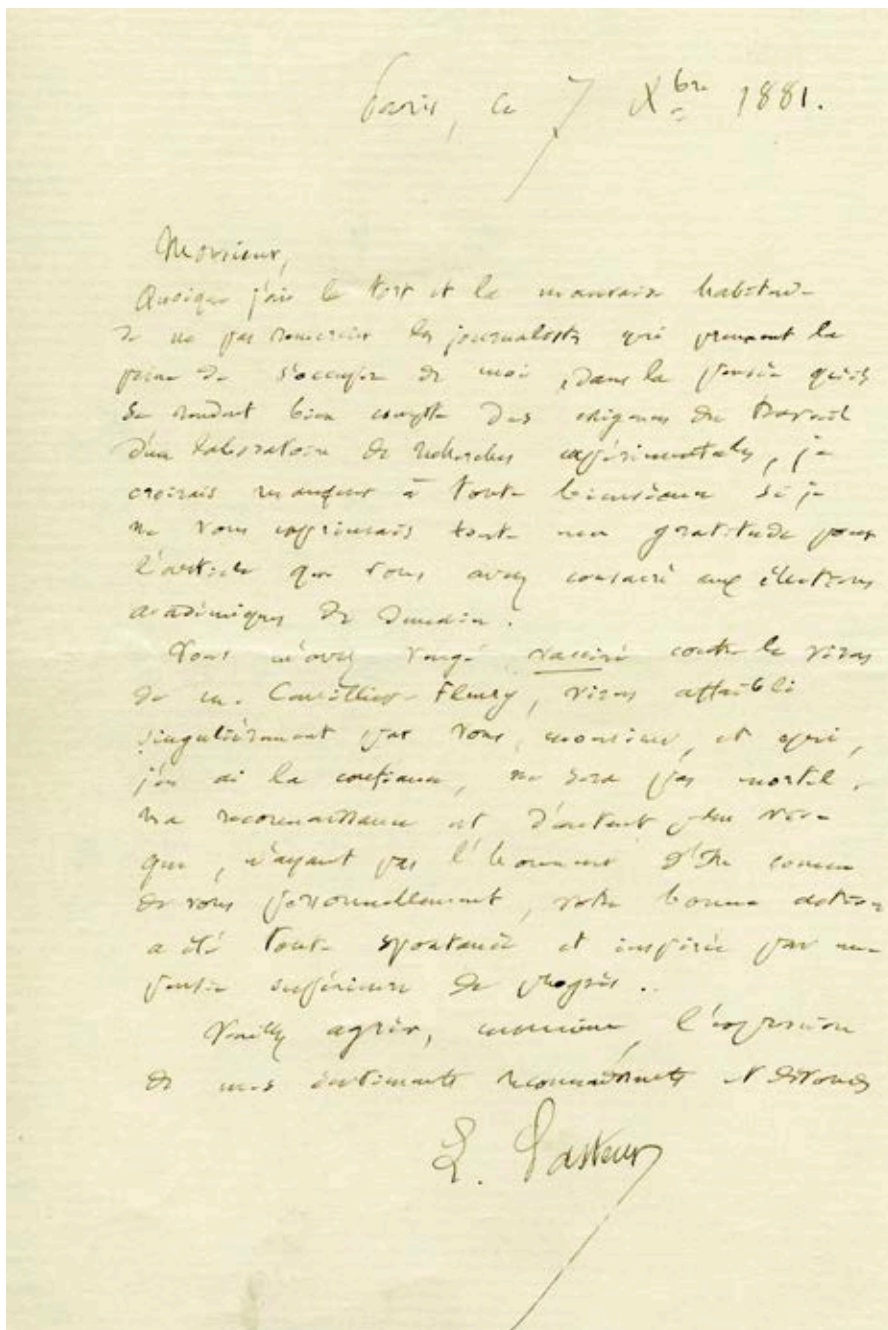 Paris, ce 7 Xbre 1881.
Monsieur,
Quoique j'aie le tort et la mauvaise habitude
de ne pas remercier les journalistes qui prennent la
peine de s'occuper de moi, dans la pensée qu'ils
se rendent bien compte des exigences du travail
d'un laboratoire de recherches expérimentales, je
croirais manquer à toute bienséance si je
ne vous exprimais toute ma gratitude pour
l'article que vous avez consacré aux élections
académiques de demain.
Vous m'avez vacciné contre le virus
de m. Cuvillier-Fleury, virus affaibli
singulièrement par vous, monsieur, et qui,
j'en ai la confiance, ne sera pas mortel.
Ma reconnaissance est d'autant plus vive
que, n'ayant pas l'honneur d'être connu
de vous personnellement, votre bonne action
a été toute spontanée et inspirée par une
pensée supérieure de progrès..
Veuillez agréer, monsieur, l'expression
de mes sentiments reconnaissants et dévoués
L. Pasteur